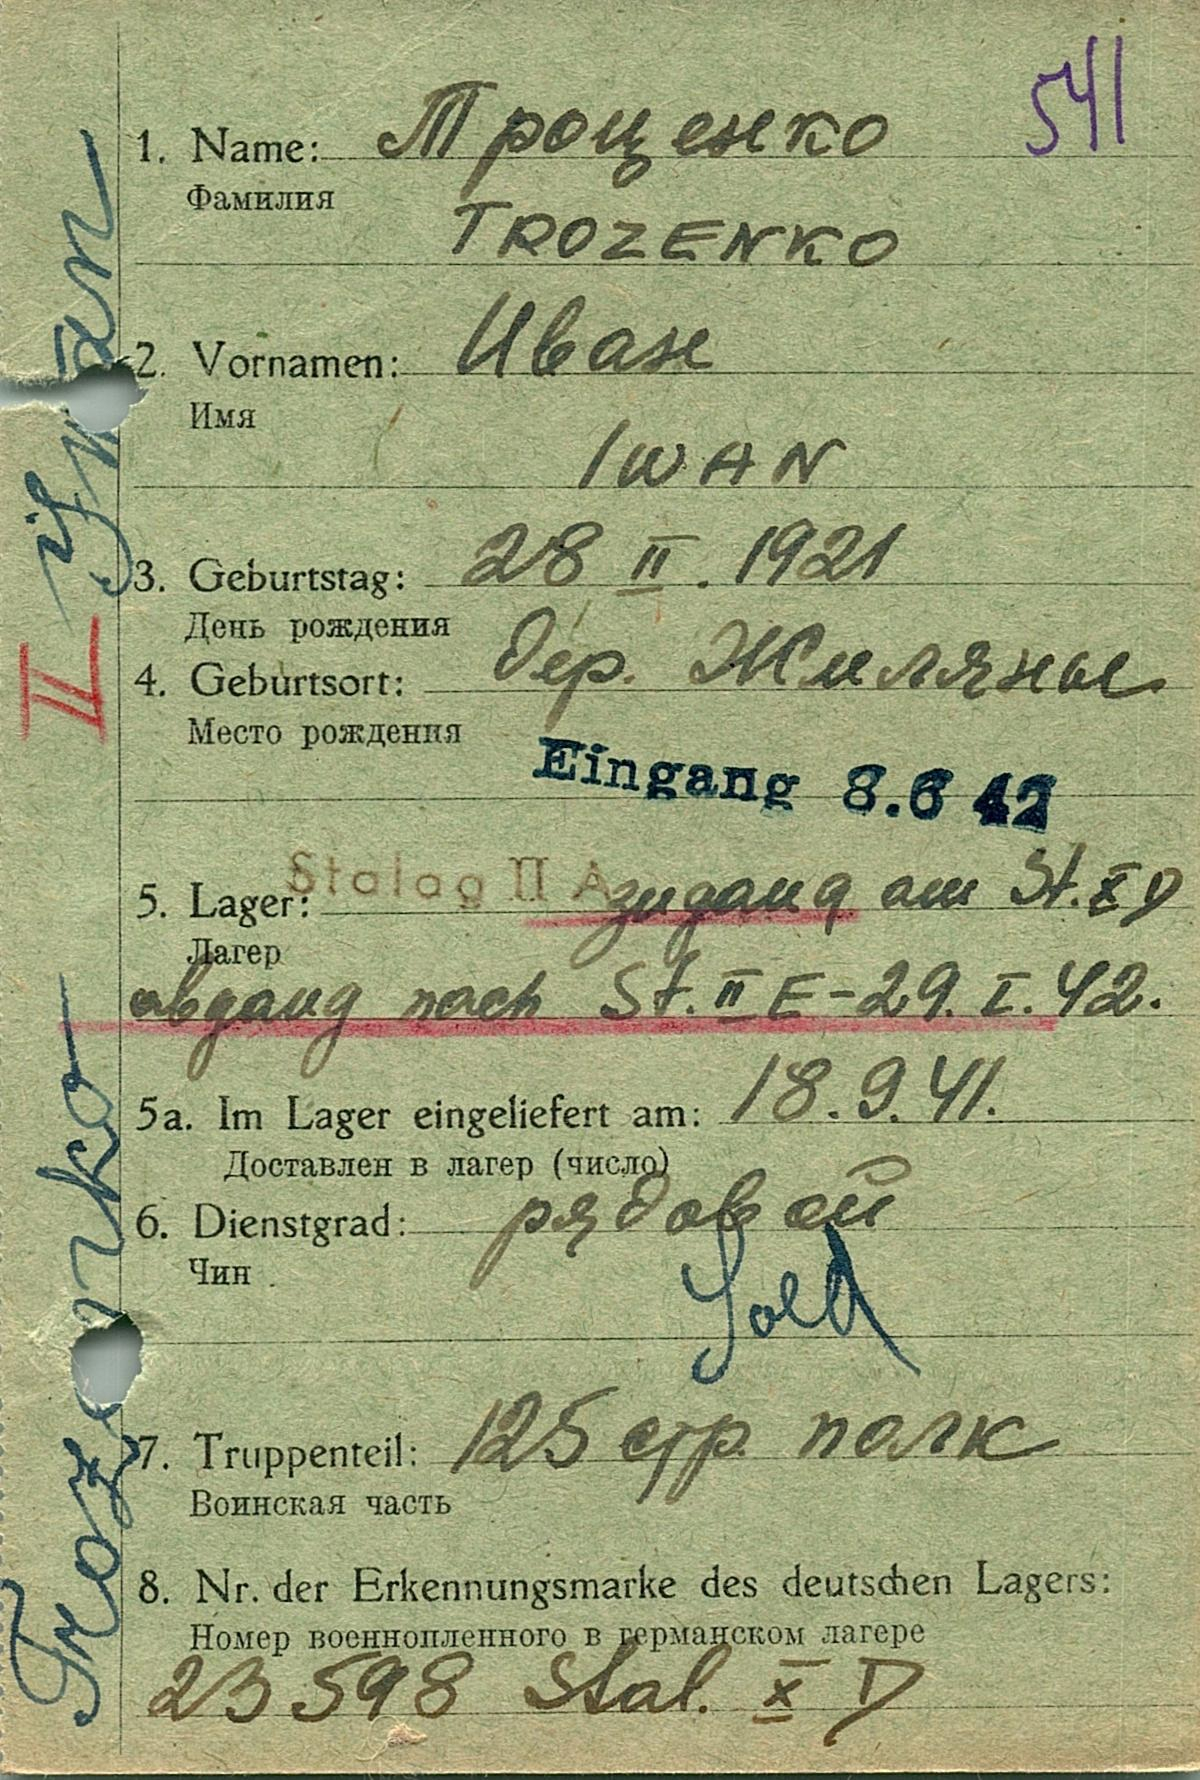 541
1. Name: Троценко
Фамилия
TROZENKO
2. Vornamen: Иван
Имя
IWAN
3. Geburtstag: 28 II. 1921
День рождения
4. Geburtsort: дер. Жиляные
Место рождения
Eingang 8.6 42
Stalag II A
5. Lager: zugang am St. X D
Лагер
abgang nach St. II E-29. I. 42.
5a. Im Lager eingeliefert am: 18.9.41.
Доставлен в лагер (число)
6. Dienstgrad: рядовой
Чин
Sold
7. Truppenteil: 125 стр. полк
Воинская часть
8. Nr. der Erkennungsmarke des deutschen Lagers:
Номер военнопленного в германском лагере
23598 Stal. X D
Trozenko II Iwan